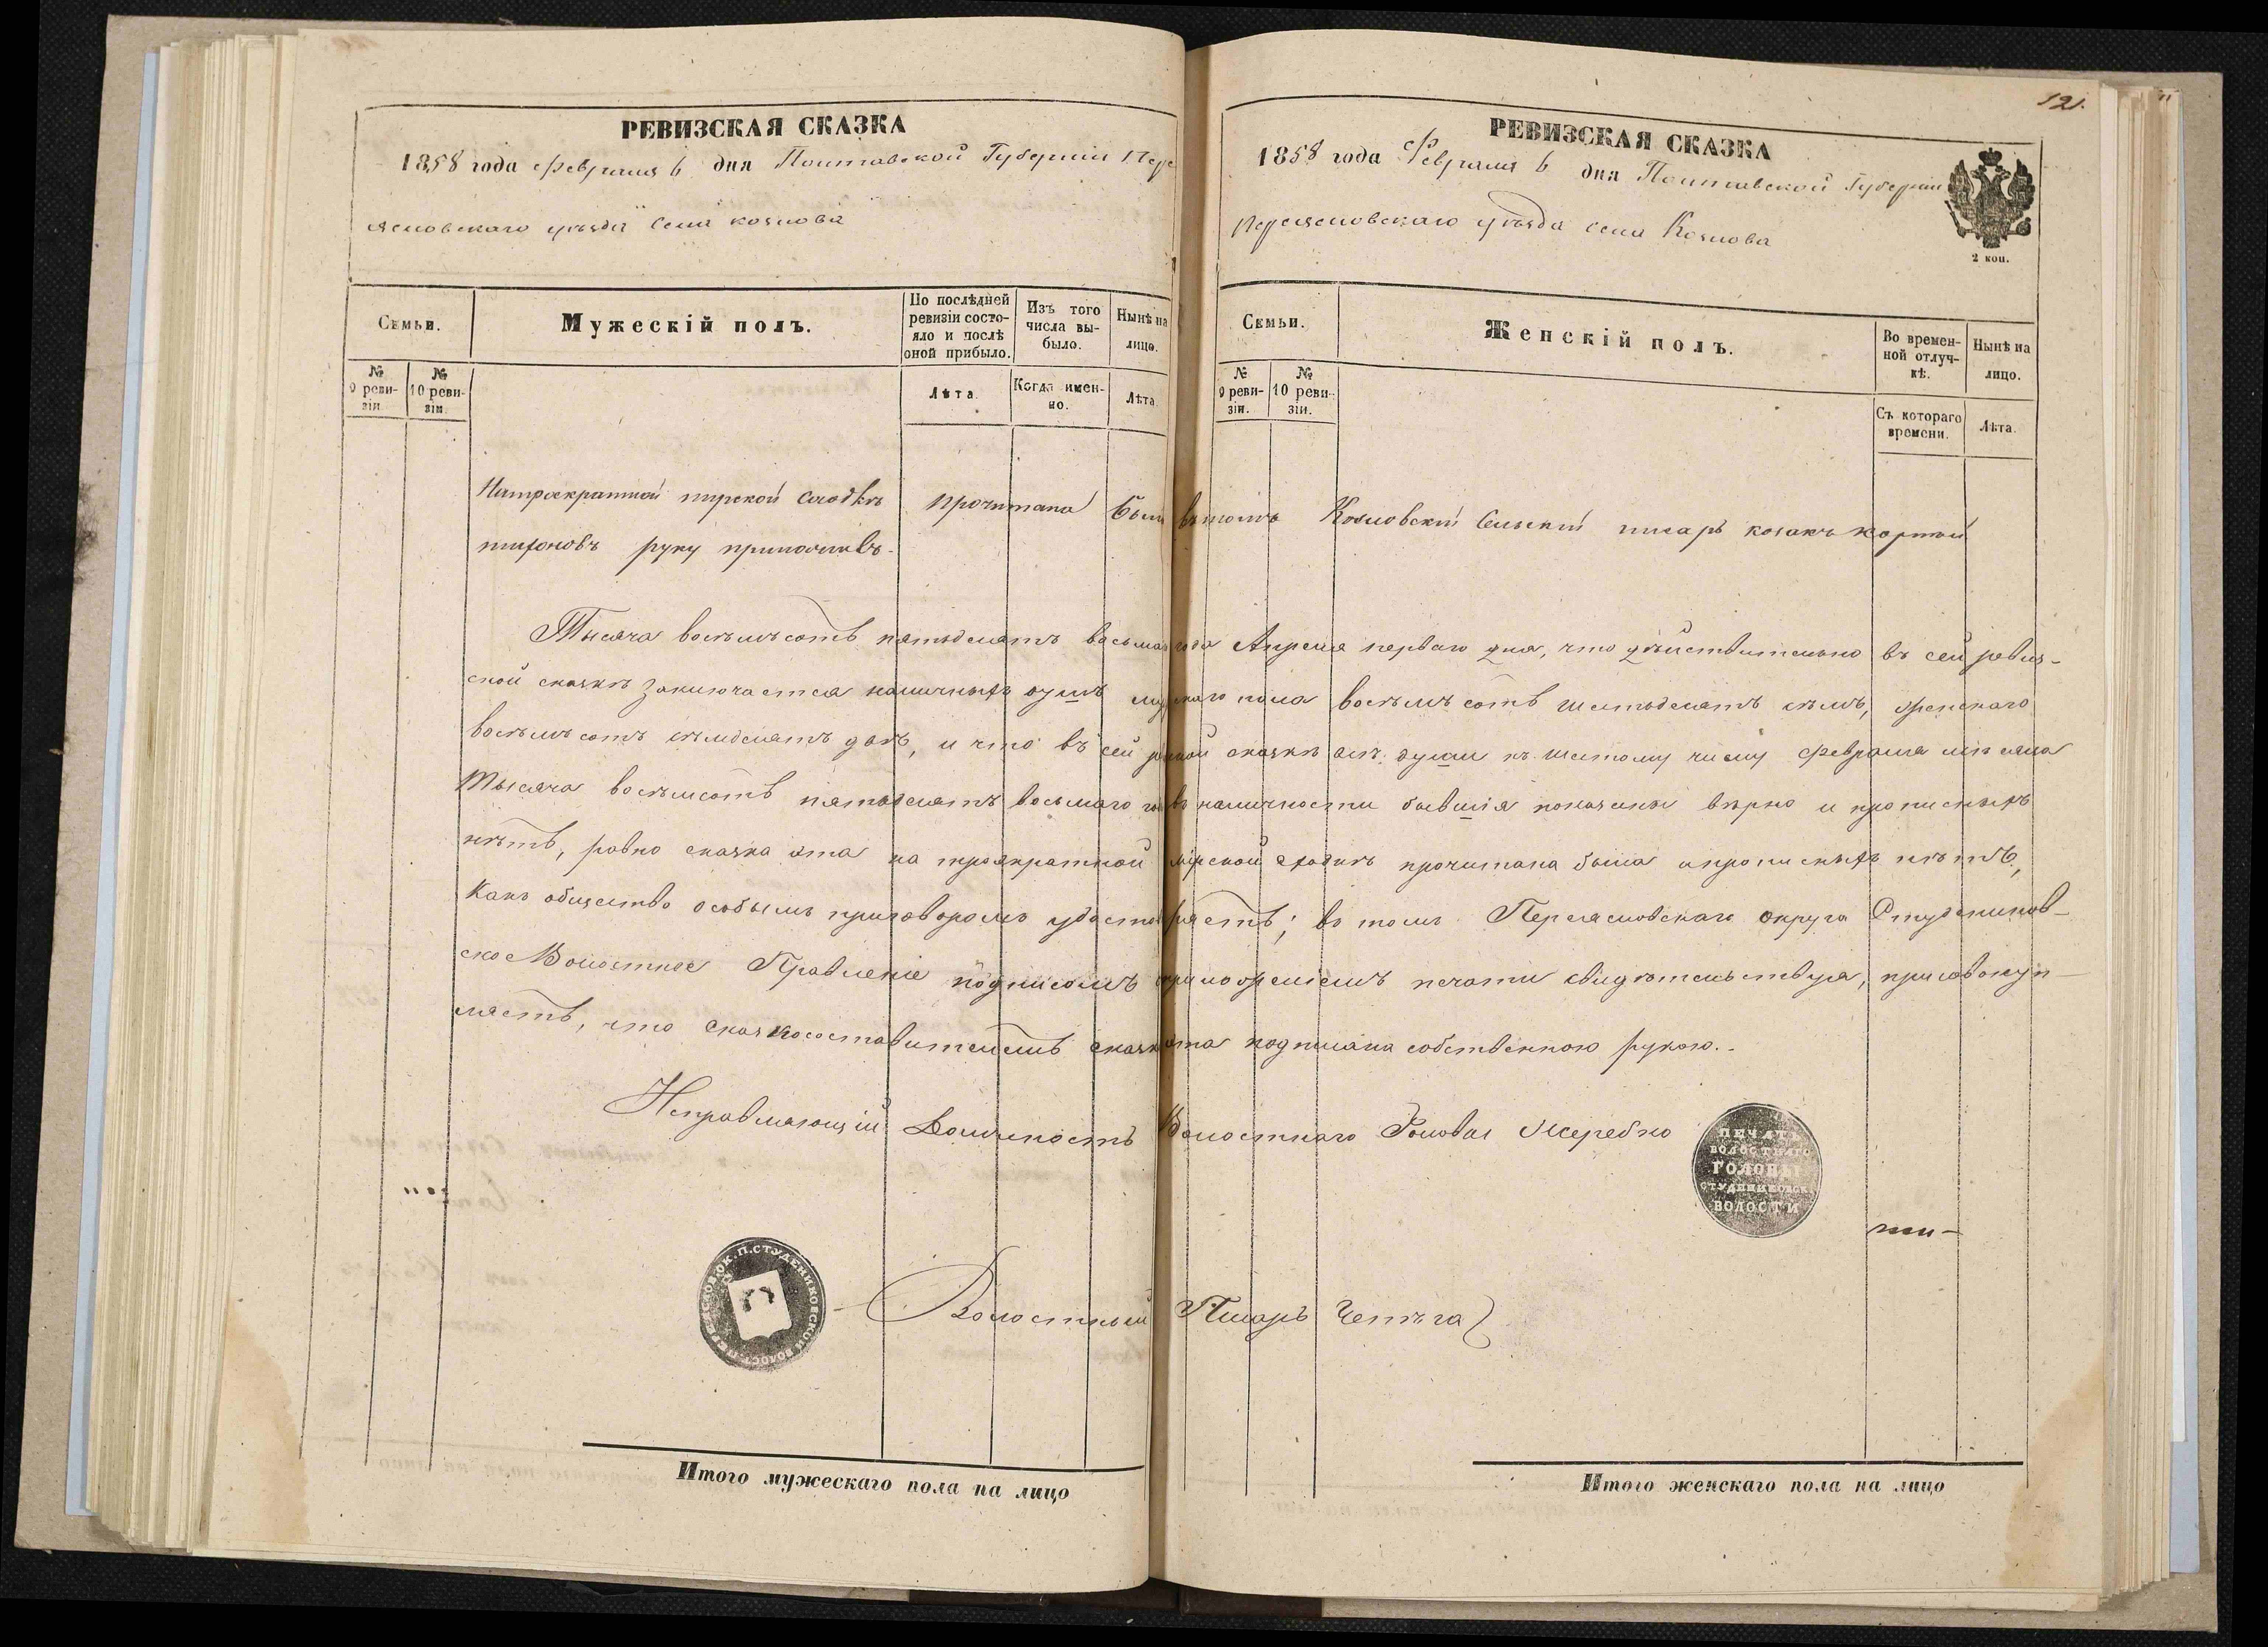 121.
РЕВИЗСКАЯ СКАЗКА
1858 года Февраля 6 дня Полтавской Губерніи Пере
яславскаго уѣзда Села Козлова
Семьи.
Мужескій полъ.
По послѣдней ревизіи состояло и послѣ оной прибыло.
Изъ того числа выбыло.
Нынѣ на лицо.
№ 9 ревизіи.
№ 10 ревизіи.
Лѣта.
Когда именно.
Лѣта.
РЕВИЗСКАЯ СКАЗКА
1858 года Февраля 6 дня Полтавской Губерніи
Переяславскаго уѣзда села Козлова
2 коп.
Семьи.
Женскій полъ.
Во временной отлучкѣ.
Нынѣ на лицо.
№ 9 ревизіи.
№ 10 ревизіи.
Съ котораго времени.
Лѣта.
Натроекратной мирской сходкѣ прочитана была вътомъ Козловскій Сельскій писарь козакъ
руку приложивъ.
Тысяча восѣмъсотъ пятьдесятъ восьмаго года Апреля перваго дня, что дѣйствительно въ сей ревиз-
ской сказкѣ заключается наличныхъ душъ мужскаго пола восѣмъ сотъ шестьдесятъ сѣмъ, женскаго
восѣмъсотъ сѣмдесятъ два, и что въ сей сказкѣ всѣ души къ шестому числу Февраля мѣсяца
Тысяча восѣмсотъ пятьдесятъ восьмаго года въ наличности бывшія показаны вѣрно и прописныхъ
нѣтъ, равно сказка эта на троекратной мірской сходкѣ прочитана была и прописныхъ нѣтъ,
какъ общество особымъ приговоромъ удостовѣряетъ; въ томъ Переяславскаго округа Студеников-
ское Волостное Правленіе подписомъ приложеніемъ печати свидѣтельствуя, присовокуп-
ляетъ, что сказкосоставителемъ сказка эта подписана собственною рукою.
Исправляющій Должность Волостнаго Головы Жеребко
ПЕЧАТЬ
ВОЛОСТНАГО
ГОЛОВЫ
СТУДЕНИКОВСК
ВОЛОСТИ
Волостный Писарь Чепѣга
Итого мужескаго пола на лицо
Итого женскаго пола на лицо